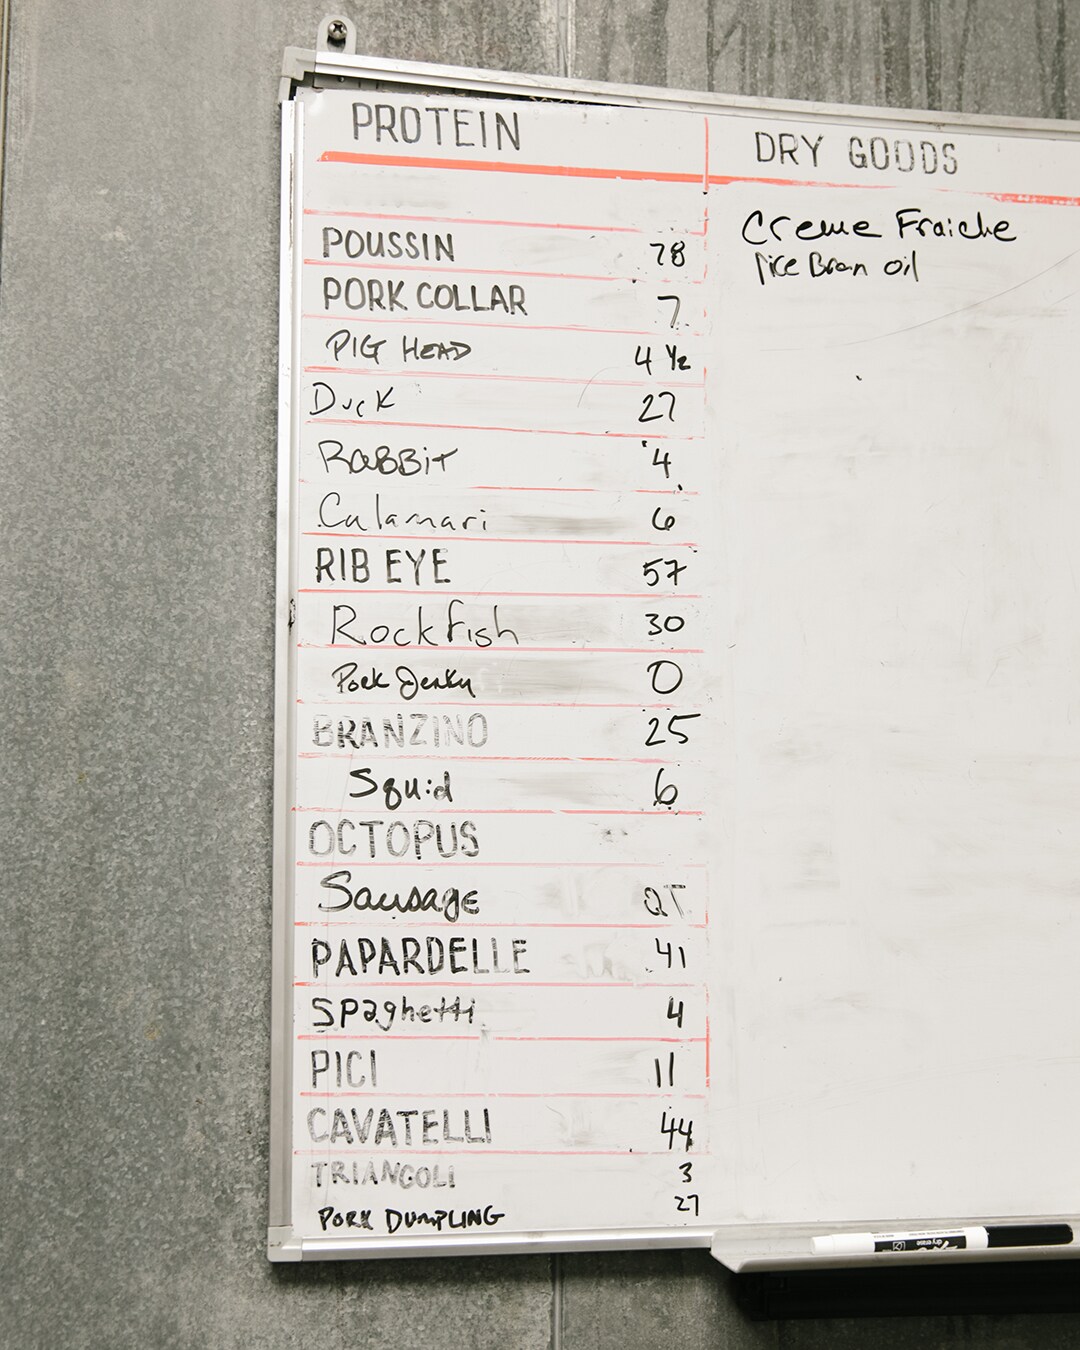 PROTEIN
DRY GOODS
Creme Fraiche
Rice Bran oil
POUSSIN 78
PORK COLLAR 7
PIG HEAD 4 1/2
Duck 27
RABBiT 4
Calamari 6
RIB EYE 57
Rockfish 30
Pork Jerky 0
BRANZINO 25
Squid 6
OCTOPUS
Sausage
PAPARDELLE 41
Spaghetti 4
PICI 11
CAVATELLI 44
TRIANGOLI 3
PORK DUMPLING 27